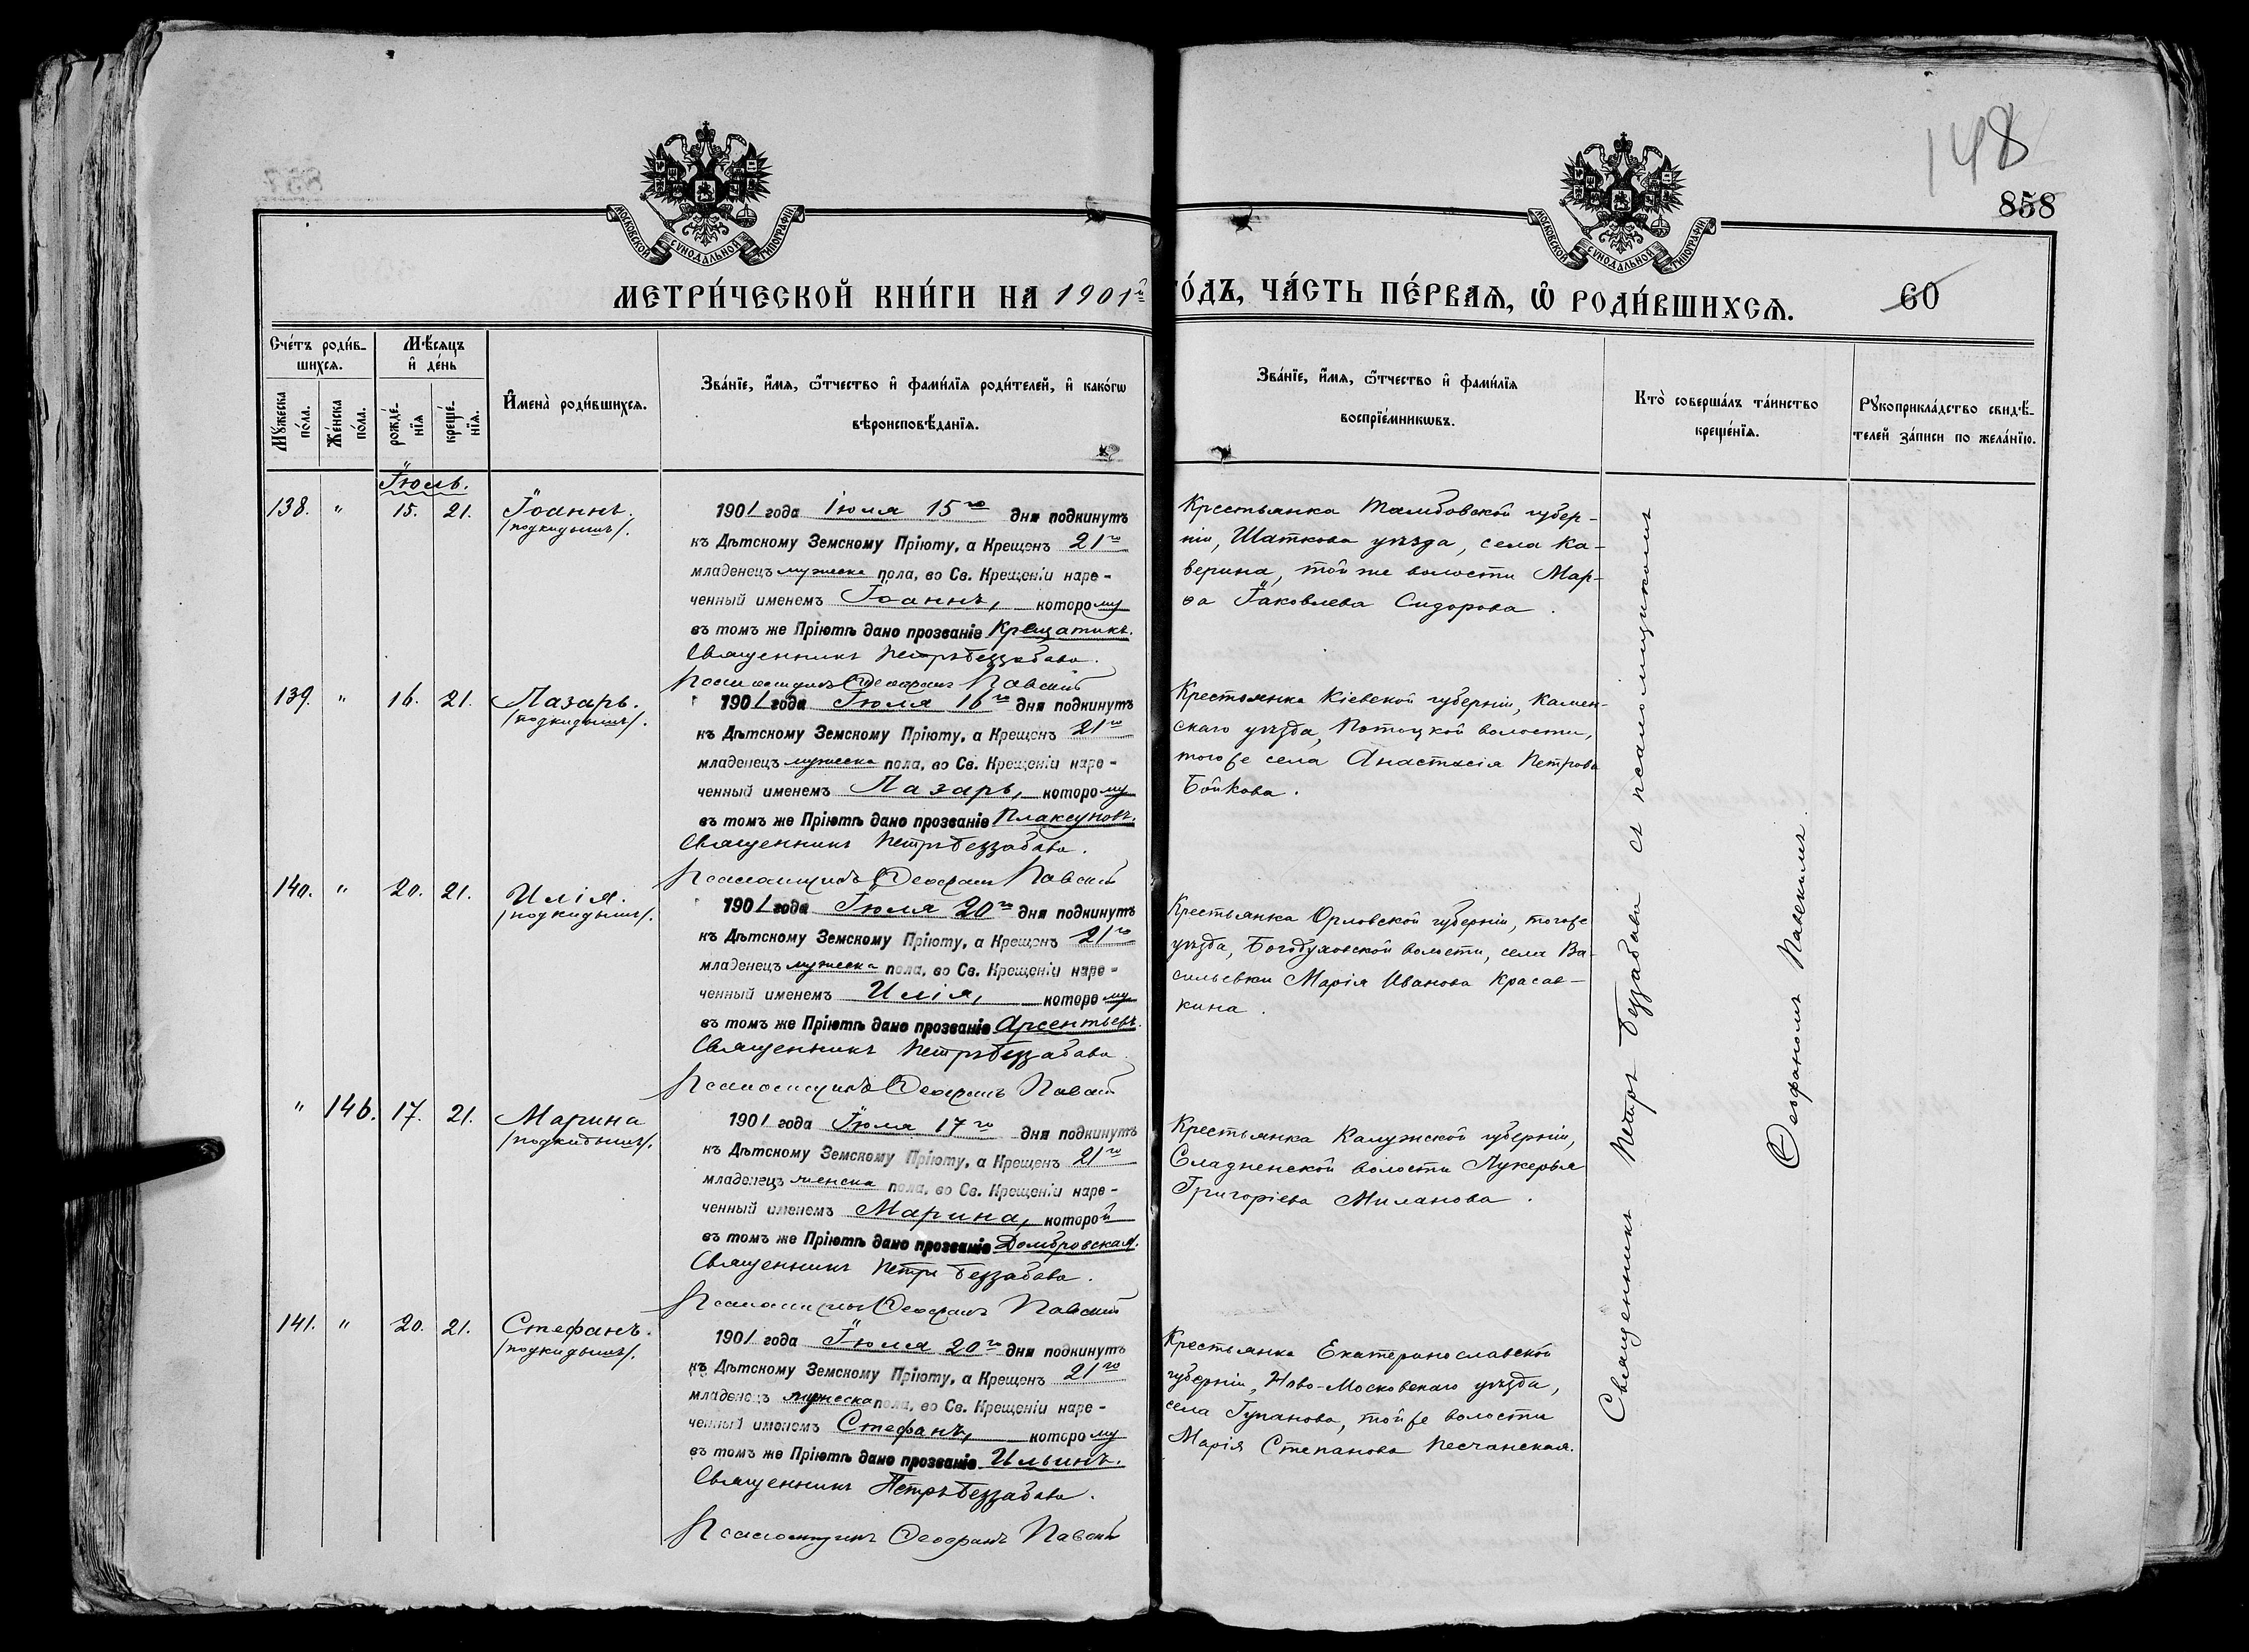 148
858
МОСКОВСКОЙ СѴНОДАЛЬНОЙ ТИПОГРАФІИ
МОСКОВСКОЙ СѴНОДАЛЬНОЙ ТИПОГРАФІИ
МЕТРИ́ЧЕСКОЙ КНИ́ГИ НА 1901й
О́ДЪ, ЧА́СТЬ ПЕ́РВАѦ, Ѡ҆ РОДИ́ВШИХСѦ.
60
Сче́тъ роди́в-
шихсѧ.
Мѣ́сѧцъ
и҆ де́нь
Мꙋ́жеска
по́ла.
Же́нска
по́ла.
рожде́-
нїѧ
креще́-
нїѧ.
И҆мена̀ роди́вшихсѧ.
Зва́нїе, и҆́мѧ, ѻ҆́тчество и҆ фами́лїѧ роди́телей, и҆ како́гѡ
вѣроисповѣ́данїѧ.
Зва́нїе, и҆́мѧ, ѻ҆́тчество и҆ фами́лїѧ
воспрїе́мникѡвъ.
Кто̀ соверша́лъ та́инство
креще́нїѧ.
Рꙋкоприкла́дство свидѣ́-
телей за́писи по жела́нїю.
Іюль.
138. " 15. 21. Іоаннъ.
/подкидышъ/.
1901 года Іюля 15го дня подкинутъ
къ Дѣтскому Земскому Пріюту, а Крещенъ 21го
младенецъ мужеска пола, во Св. Крещеніи наре-
ченный именемъ Іоаннъ, которому
въ томъ же Пріютѣ дано прозваніе Крещатикъ.
Священникъ Петръ Беззабава.
Псаломщикъ Ѳеофанъ Павскій
Крестьянка Тамбовской губер-
ніи, Шаткова уѣзда, села Ка-
верина, той же волости Мар-
ѳа Іаковлева Сидорова.
139. " 16. 21. Лазарь.
/подкидышъ/.
1901 года Іюля 16го дня подкинутъ
къ Дѣтскому Земскому Пріюту, а Крещенъ 21го
младенецъ мужеска пола, во Св. Крещеніи наре-
ченный именемъ Лазарь, которому
въ томъ же Пріютѣ дано прозваніе Плаксуновъ.
Священникъ Петръ Беззабава.
Псаломщикъ Ѳеофанъ Павскій
Крестьянка Кіевской губерніи, Камен-
скаго уѣзда, Потоцкой волости,
того же села Анастасія Петрова
Бойкова.
140. " 20. 21. Илія.
/подкидышъ/.
1901 года Іюля 20го дня подкинутъ
къ Дѣтскому Земскому Пріюту, а Крещенъ 21го
младенецъ мужеска пола, во Св. Крещеніи наре-
ченный именемъ Илія, которому
въ томъ же Пріютѣ дано прозваніе Арсентьевъ.
Священникъ Петръ Беззабава.
Псаломщикъ Ѳеофанъ Павскій
Крестьянка Орловской губерніи, того же
уѣзда, Богодуховской волости, села Ва-
сильевки Марія Иванова Красав-
кина.
" 146. 17. 21. Марина
/подкидышъ/.
1901 года Іюля 17го дня подкинутъ
къ Дѣтскому Земскому Пріюту, а Крещенъ 21го
младенецъ женска пола, во Св. Крещеніи наре-
ченный именемъ Марина, которой
въ томъ же Пріютѣ дано прозваніе Домбровская.
Священникъ Петръ Беззабава.
Псаломщикъ Ѳеофанъ Павскій
Крестьянка Калужской губерніи,
Сладненской волости Лукерья
Григоріева Миланова.
141. " 20. 21. Стефанъ.
/подкидышъ/.
1901 года Іюля 20го дня подкинутъ
къ Дѣтскому Земскому Пріюту, а Крещенъ 21го
младенецъ мужеска пола, во Св. Крещеніи наре-
ченный именемъ Стефанъ, которому
въ томъ же Пріютѣ дано прозваніе Ильинъ.
Священникъ Петръ Беззабава.
Псаломщикъ Ѳеофанъ Павскій
Крестьянка Екатеринославской
губерніи, Ново-Московскаго уѣзда,
села Гупанова, той же волости
Марія Степанова Песчанская.
Священникъ Петръ Беззабава съ псаломщикомъ
Ѳеофаномъ Павскимъ.